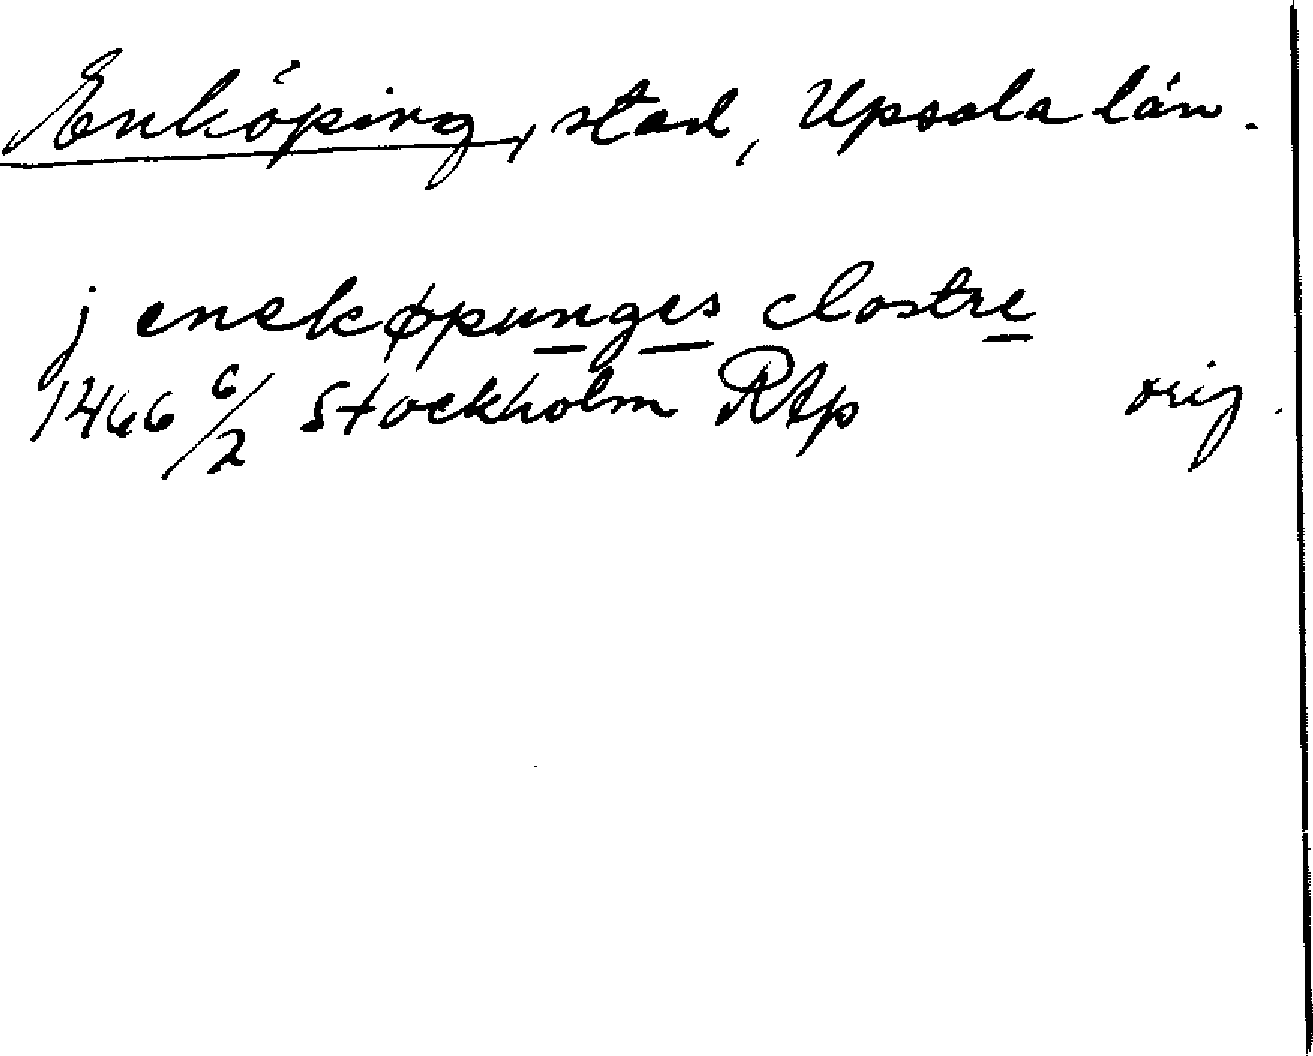 Enköping, stad, Upsala län.
j enekøpunges clostre
1466 6/2 Stockholm RAp orig.